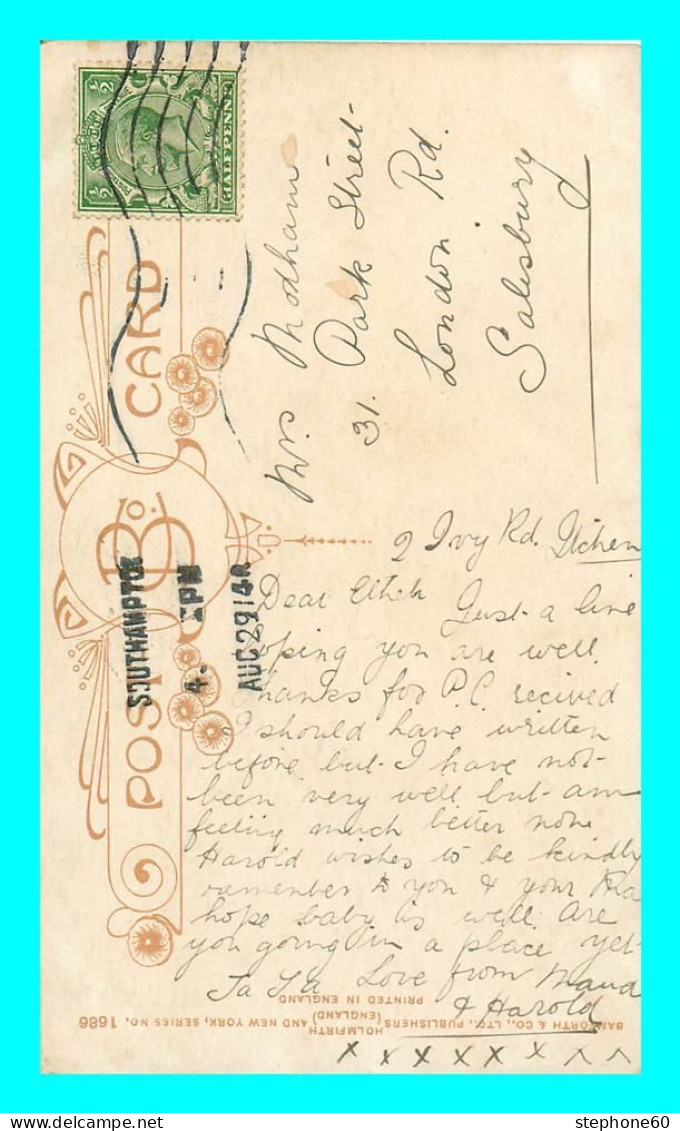 HALFPENNY
POST CARD
SOUTHAMPTON
4. PM
AUG 29 14
Mrs Modham
31. Park Street
London Rd.
Salesbury
2 Ivy Rd. Itchen
Dear Just a line
oping you are well.
Thanks for P.C. recived
I should have written
before but I have not
been very well but am
feeling much better none
Harold wishes to be kindly
remember to you & your
hope baby is well. are
you going in a place yet
Ta Ta Love from Maud
& Harold
x x x x x x x x x
BAMFORTH & CO., LTD., PUBLISHERS HOLMFIRTH (ENGLAND) AND NEW YORK, SERIES NO. 1686
PRINTED IN ENGLAND
stephone60